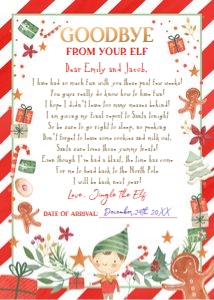 GOODBYE
FROM YOUR ELF
Dear Emily and Jacob,
I have had so much fun with you these past few weeks!
You guys really do know how to have fun!
I hope I didn't leave too many messes behind!
I am giving my final report to Santa tonight
So be sure to go right to sleep, no peeking
Don't forget to leave some cookies and milk out,
Santa sure loves those yummy treats!
Even though I've had a blast, the time has come
For me to head back to the North Pole
I will be back next year!
Love, Jingle the Elf
DATE OF ARRIVAL: December 24th 20XX